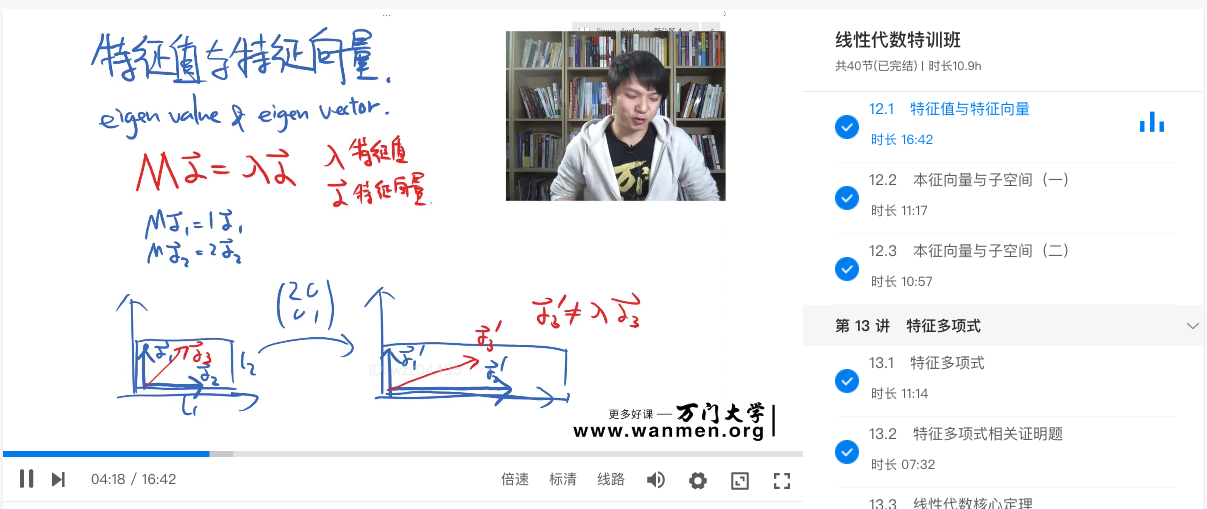 特征值与特征向量.
eigen value & eigen vector.
Mα⃗ = λα⃗
λ 特征值
α⃗ 特征向量.
Mα⃗₁ = 1α⃗₁
Mα⃗₂ = 2α⃗₂
(2 0
0 1)
α⃗₃' ≠ λα⃗₃
α⃗₁
α⃗₃
α⃗₂
l₂
l₁
α⃗₁'
α⃗₃'
α⃗₂'
万门
更多好课 — 万门大学
www.wanmen.org
04:18 / 16:42
倍速 标清 线路
线性代数特训班
共40节(已完结) | 时长10.9h
12.1 特征值与特征向量
时长 16:42
12.2 本征向量与子空间（一）
时长 11:17
12.3 本征向量与子空间（二）
时长 10:57
第 13 讲 特征多项式
13.1 特征多项式
时长 11:14
13.2 特征多项式相关证明题
时长 07:32
13.3 线性代数核心定理